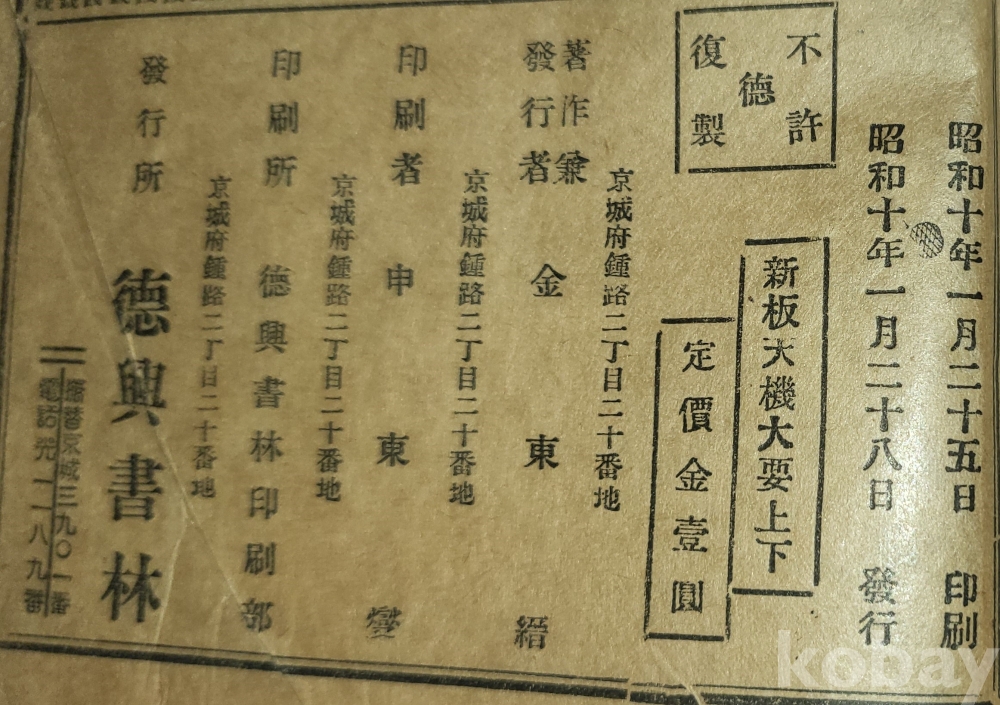 昭和十年一月二十五日 印刷
昭和十年一月二十八日 發行
不許
德
復製
新板大機大要上下
定價金壹圓
京城府鍾路二丁目二十番地
著作兼
發行者 金東縉
京城府鍾路二丁目二十番地
印刷者 申東燮
京城府鍾路二丁目二十番地
印刷所 德興書林印刷部
京城府鍾路二丁目二十番地
發行所 德興書林
振替京城三九〇一番
電話光一二八九番
kobay